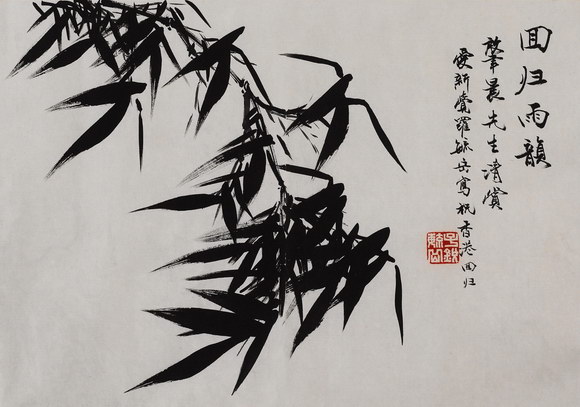 回归雨韻
肇晨先生清賞
愛新覺羅毓岳寫祝香港回归